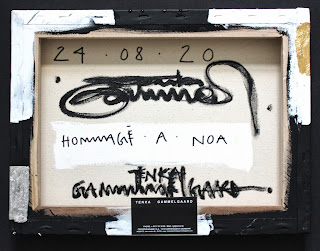 24 · 08 · 20
HOMMAGÉ · A · NOA
TENKA
GAMMELGAARD
TENKA GAMMELGAARD